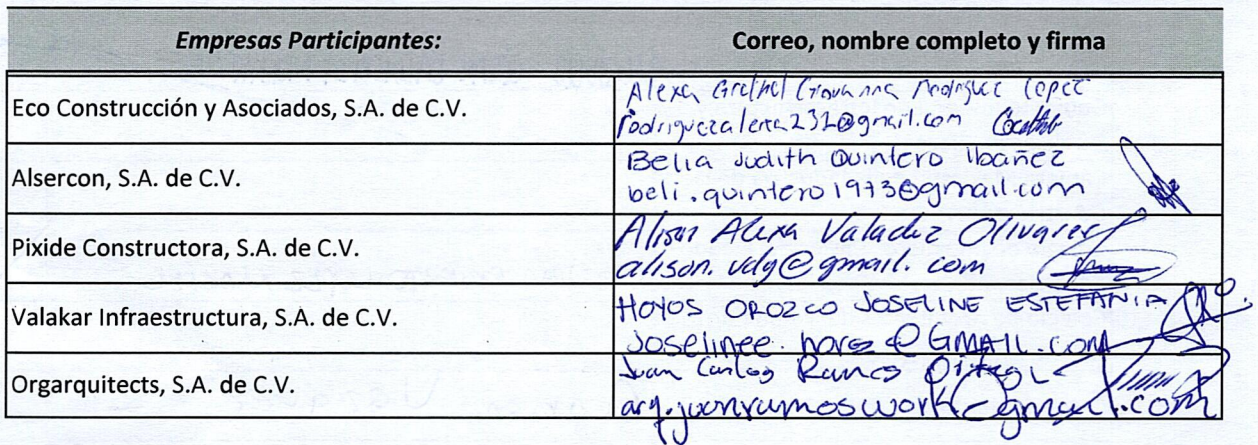 Empresas Participantes: Correo, nombre completo y firma
Eco Construcción y Asociados, S.A. de C.V. Alexa Giovanna Rodriguez Lopez
@gmail.com
Alsercon, S.A. de C.V. Belia Judith Quintero Ibañez
beli.quintero1973@gmail.com
Pixide Constructora, S.A. de C.V. Alison Alexa Valadez Olivares
alison.vdg@gmail.com
Valakar Infraestructura, S.A. de C.V. HOYOS OROZCO JOSELINE ESTEFANIA
@GMAIL.COM
Orgarquitects, S.A. de C.V. Juan Carlos Ramos
arq.juanramoswork@gmail.com